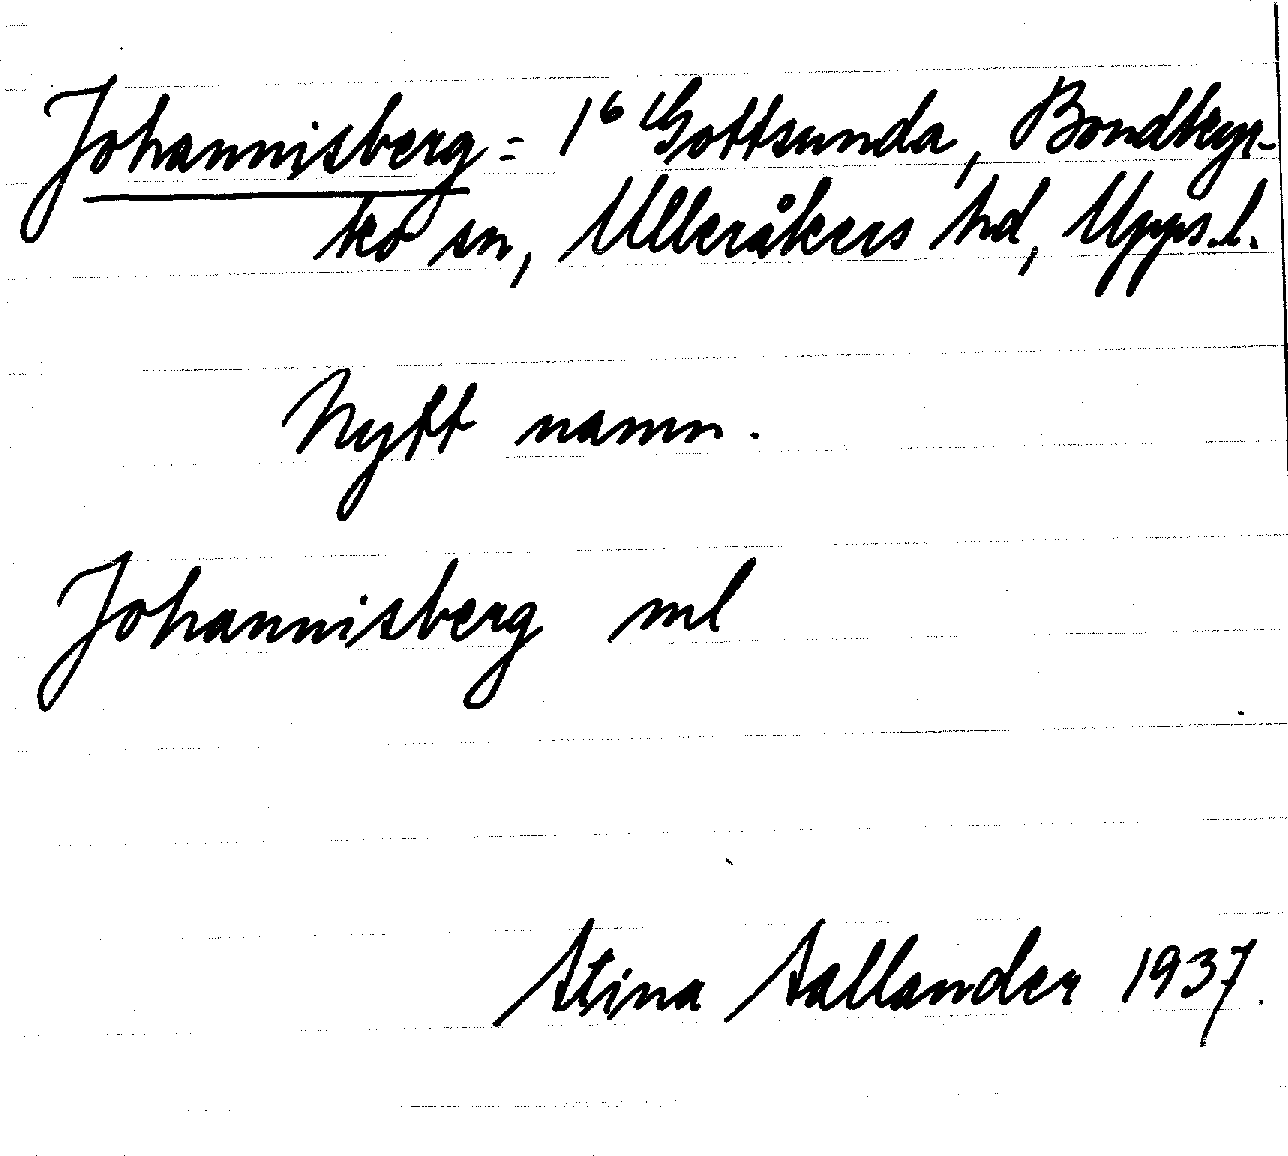 Johannisberg = 1⁶ Gottsunda, Bondkyr-
ko sn, Ulleråkers hd, Upps.l.
Nytt namn.
Johannisberg ml
Stina Sallander 1937.